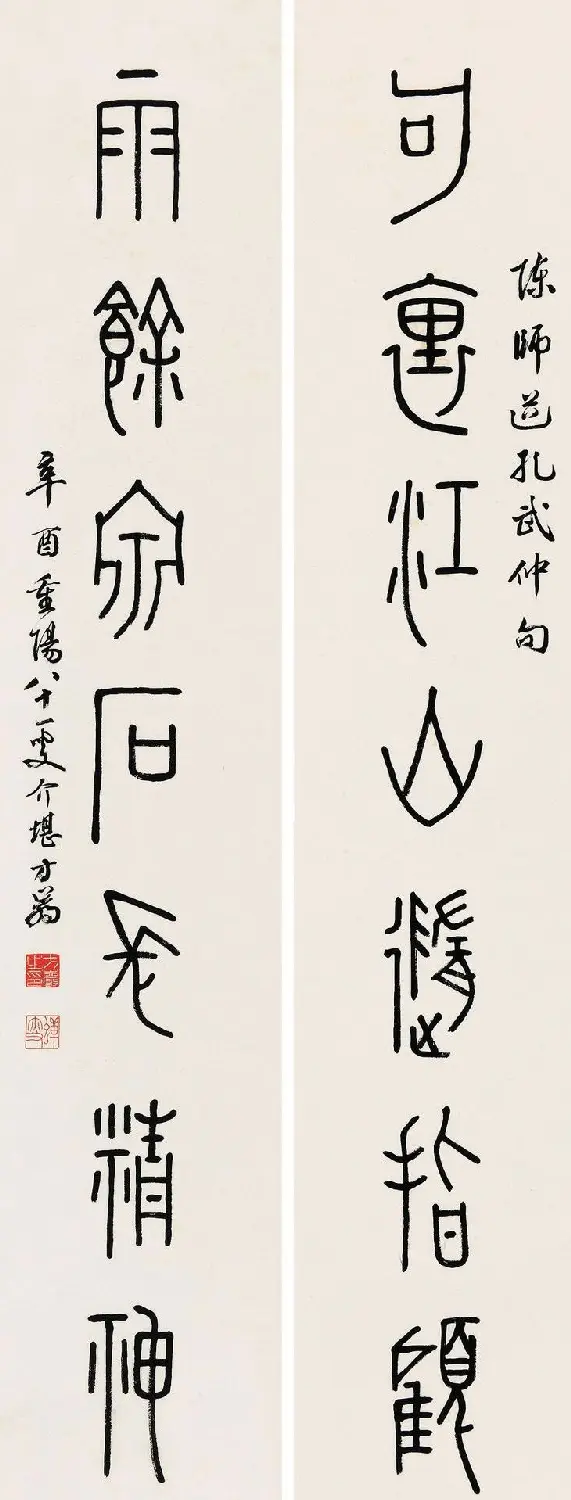 陳師道孔武仲句
句裏江山隨指顧
雨餘泉石長精神
辛酉重陽八十一叟介堪方嵒